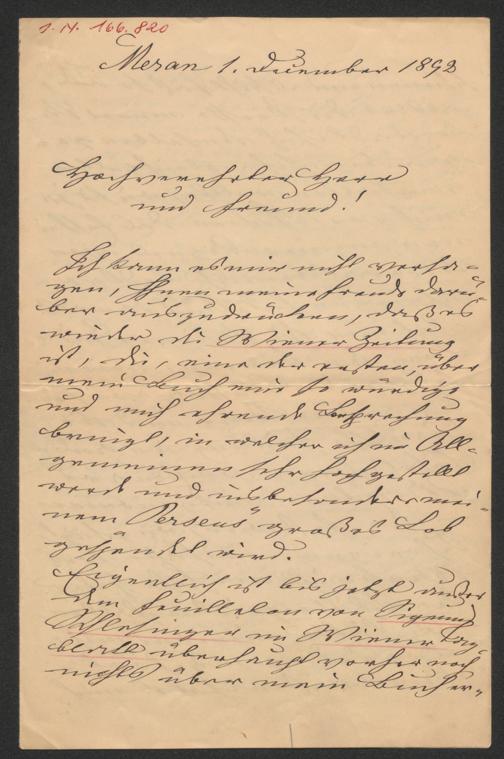 I. N. 166.820
Meran 1. December 1892
Hochverehrter Herr
und Freund!
Ich kann es mir nicht versa-
gen, Ihnen meine Freude darü-
ber auszudrücken, daß es
wieder die Wiener Zeitung
ist, die, eine der ersten, über
mein Buch eine so würdige
und mich ehrende Besprechung
bringt, in welcher ich im All-
gemeinen sehr hochgestellt
werde und insbesondere mei-
nem „Perseus" großes Lob
gespendet wird.
Eigentlich ist bis jetzt außer
dem Feuilleton von Sigmund
Schlesinger im Wiener Tag-
blatt überhaupt vorher noch
nichts über mein Buch er-